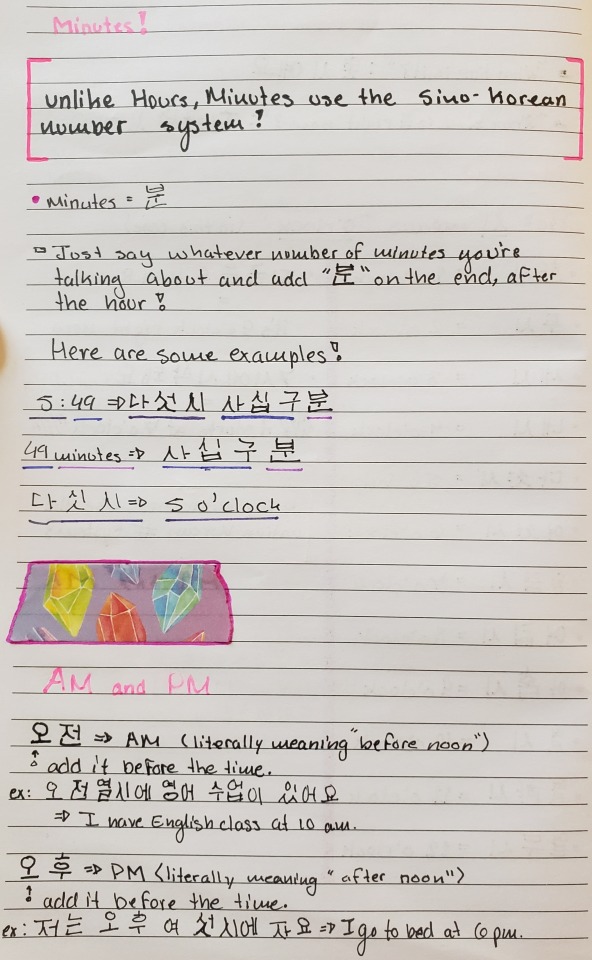 Minutes!
unlike Hours, Minutes use the Sino-Korean
number system!
• Minutes = 분
Just say whatever number of minutes you're
talking about and add "분" on the end, after
the hour!
Here are some examples!
5:49 ⇒ 다섯 시 사십 구 분
49 minutes ⇒ 사십 구 분
다 싯 시 ⇒ 5 o'clock
AM and PM
오 전 ⇒ AM (literally meaning "before noon")
add it before the time.
ex: 오 전 열시에 영어 수업이 있어요
⇒ I have English class at 10 am.
오 후 ⇒ PM (literally meaning "after noon")
add it before the time.
ex: 저는 오 후 여 섯 시에 자요 ⇒ I go to bed at 6 pm.